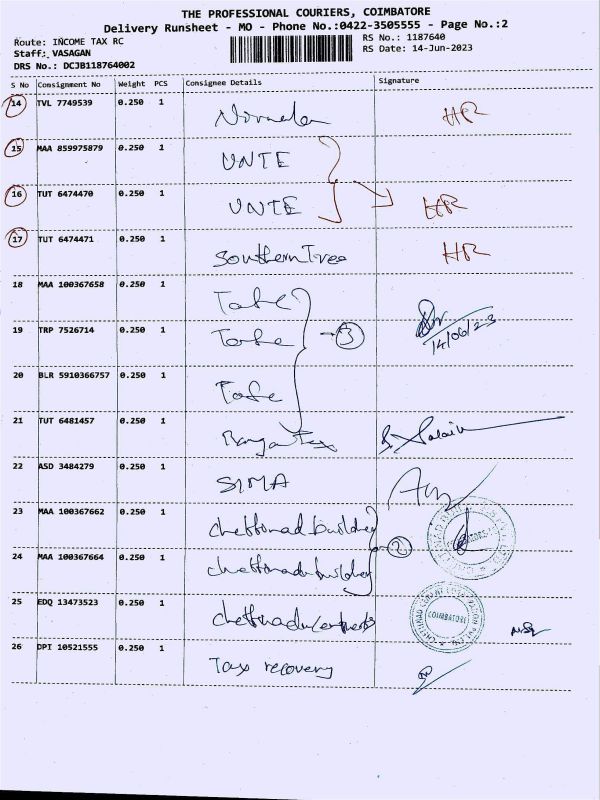 THE PROFESSIONAL COURIERS, COIMBATORE
Delivery Runsheet - MO - Phone No.:0422-3505555 - Page No.:2
Route: INCOME TAX RC
RS No.: 1187640
Staff: VASAGAN
RS Date: 14-Jun-2023
DRS No.: DCJB118764002
S No Consignment No Weight PCS Consignee Details Signature
14 TVL 7749539 0.250 1 Nirmala HR
15 MAA 859975879 0.250 1 UNTE
16 TUT 6474470 0.250 1 UNTE HR
17 TUT 6474471 0.250 1 SouthernTree HR
18 MAA 100367658 0.250 1 Tafe
14/06/23
19 TRP 7526714 0.250 1 Tafe 3
20 BLR 5910366757 0.250 1 Tafe
21 TUT 6481457 0.250 1
22 ASD 3484279 0.250 1 SIMA
23 MAA 100367662 0.250 1 chettinad builders
24 MAA 100367664 0.250 1 chettinad builders 2
25 EDQ 13473523 0.250 1 chettinad COIMBATORE
26 DPI 10521555 0.250 1 Tax recovery